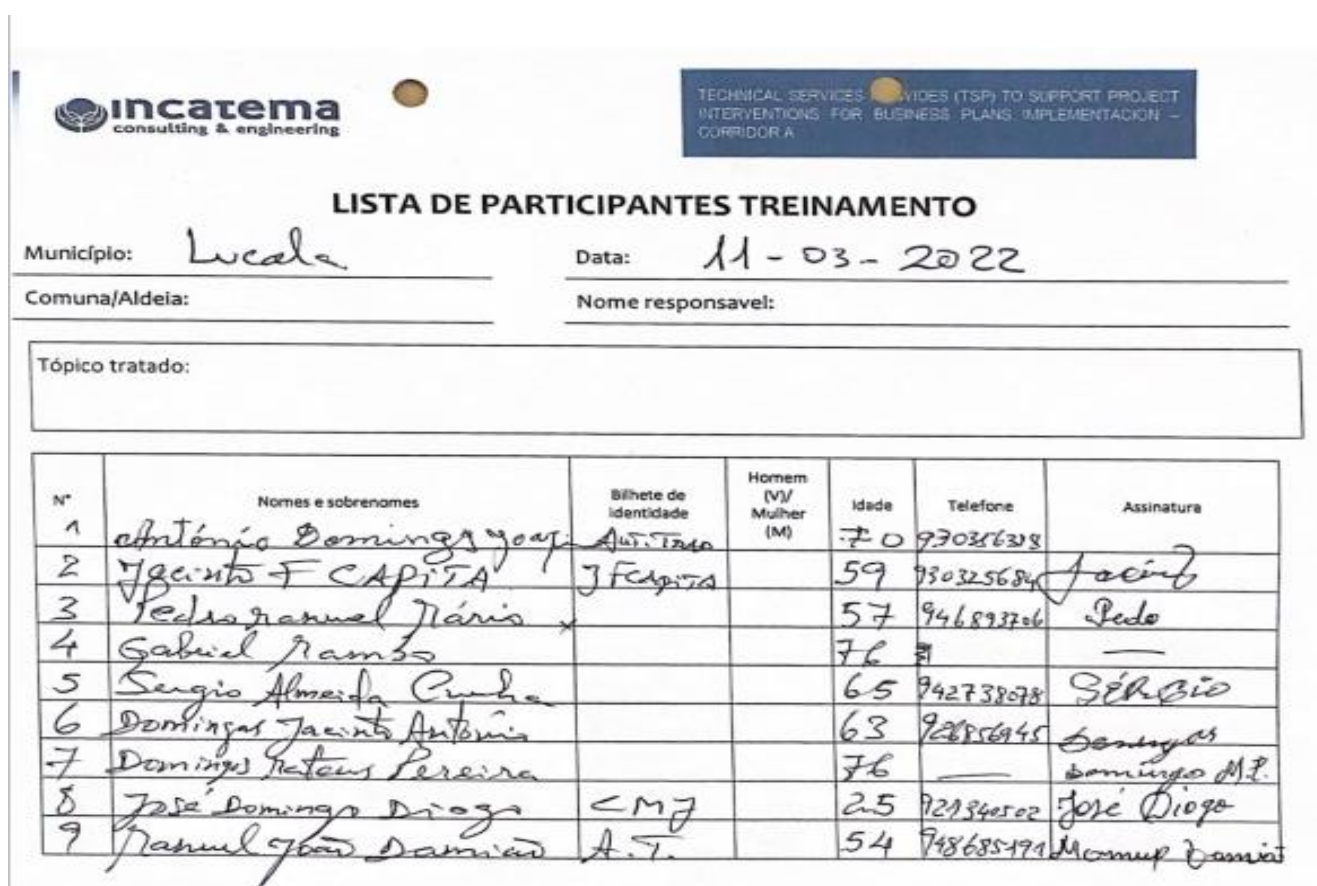 incatema
consulting & engineering
TECHNICAL SERVICES VIDES (TSP) TO SUPPORT PROJECT
INTERVENTIONS FOR BUSINESS PLANS IMPLEMENTACION –
CORRIDOR A
LISTA DE PARTICIPANTES TREINAMENTO
Município: Lucala Data: 11-03-2022
Comuna/Aldeia: Nome responsavel:
Tópico tratado:
N° Nomes e sobrenomes Bilhete de identidade Homem (V)/ Mulher (M) Idade Telefone Assinatura
1 António Domingos 70
2 Jacinto F CAPITA J F CAPITA 59 930325684 Jacinto
3 Pedro Manuel Mário 57 946893706 Pedo
4 Gabriel 76 —
5 Sergio Almeida Cunha 65 942738078 SÉRGIO
6 Domingas Jacinto António 63 926856945 Domingas
7 Domingos Mateus Pereira 76 — Domingo M.P.
8 José Domingo Diogo CMJ 25 921340502 José Diogo
9 Manuel João Damião A.T. 54 948685191